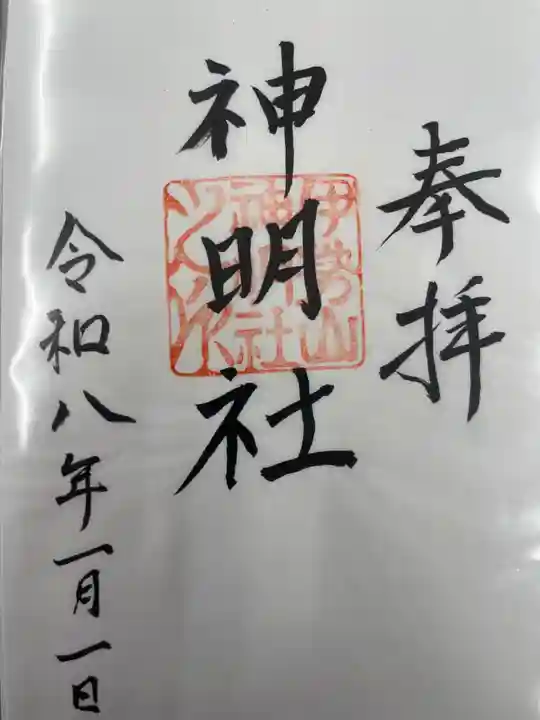 奉拝
神明社
伊勢山
神明社
之印
令和八年一月一日